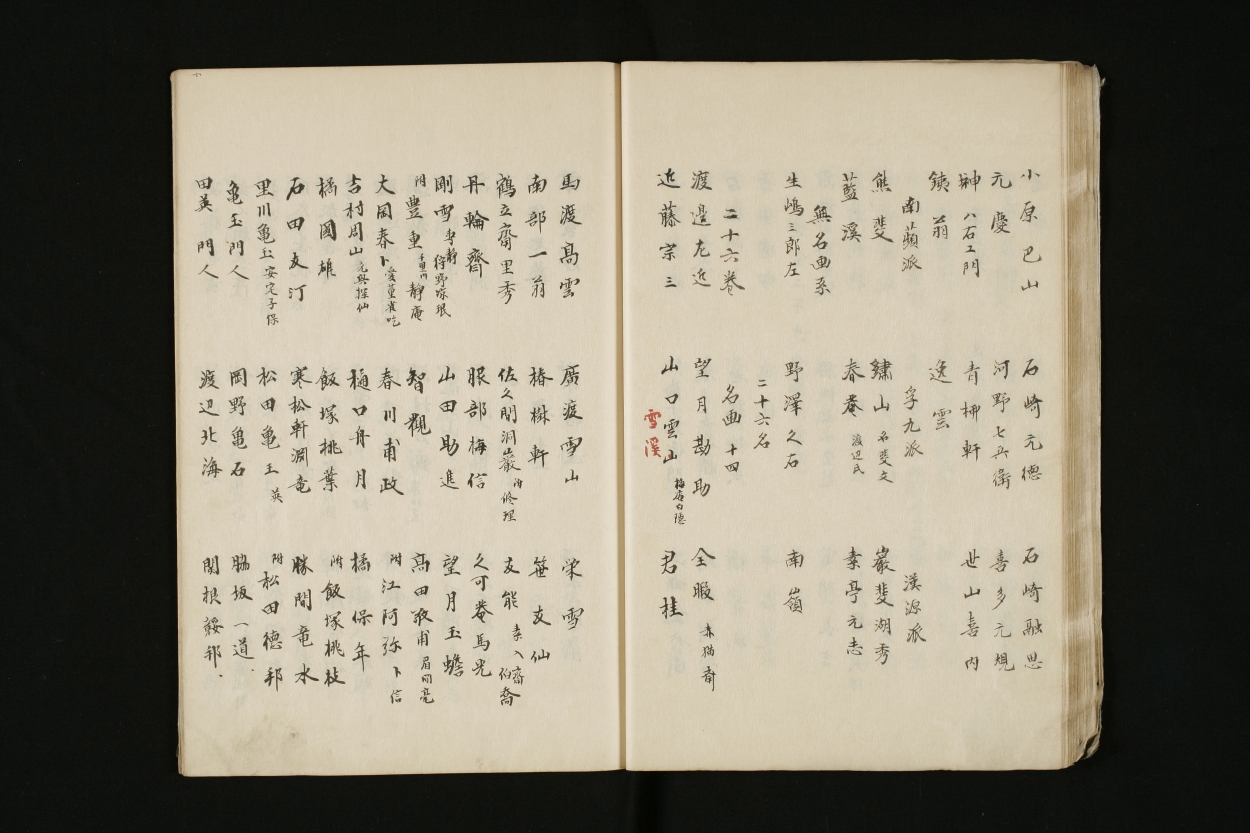 小原巴山
石崎元徳
石崎融思
元慶
河野七兵衛
喜多元規
榊 八石工門
青柳軒
世山喜内
銕翁
逸雲
南蘋派
孚九派
漢源派
熊斐
繡山 名斐文
巖斐湖秀
藍溪
春菴 渡辺氏
素亭元志
無名画系
生嶋三郎左
野澤久右
南嶺
二十六名
二十六巻
名画十四
渡邉左近
望月勘助
全暇 赤猫斎
近藤宗三
山口雲山
君桂
雪溪
馬渡髙雲
廣渡雪山
栄雪
南部一翁
椿樹軒
笹支仙
鶴立齋里秀
佐久間洞巖 附修理
友能 素八齋 伯喬
丹輪齋
服部梅信
久可菴馬光
剛雪
山田助進
望月玉蟾
附豊重 静庵
智觀
高田敬甫 眉間亮
大岡春卜 愛董雀吃
春川甫政
附江阿弥 卜信
吉村周山 元興探仙
樋口舟月
橘保年
橘國雄
飯塚桃葉
附飯塚桃枝
石田友汀
寒松軒淵竜
勝間竜水
里川亀玉 安定子保
松田亀玉 英
附松田德邦
亀玉門人
岡野亀石
脇坂一道
田英門人
渡辺北海
関根𩋾邦